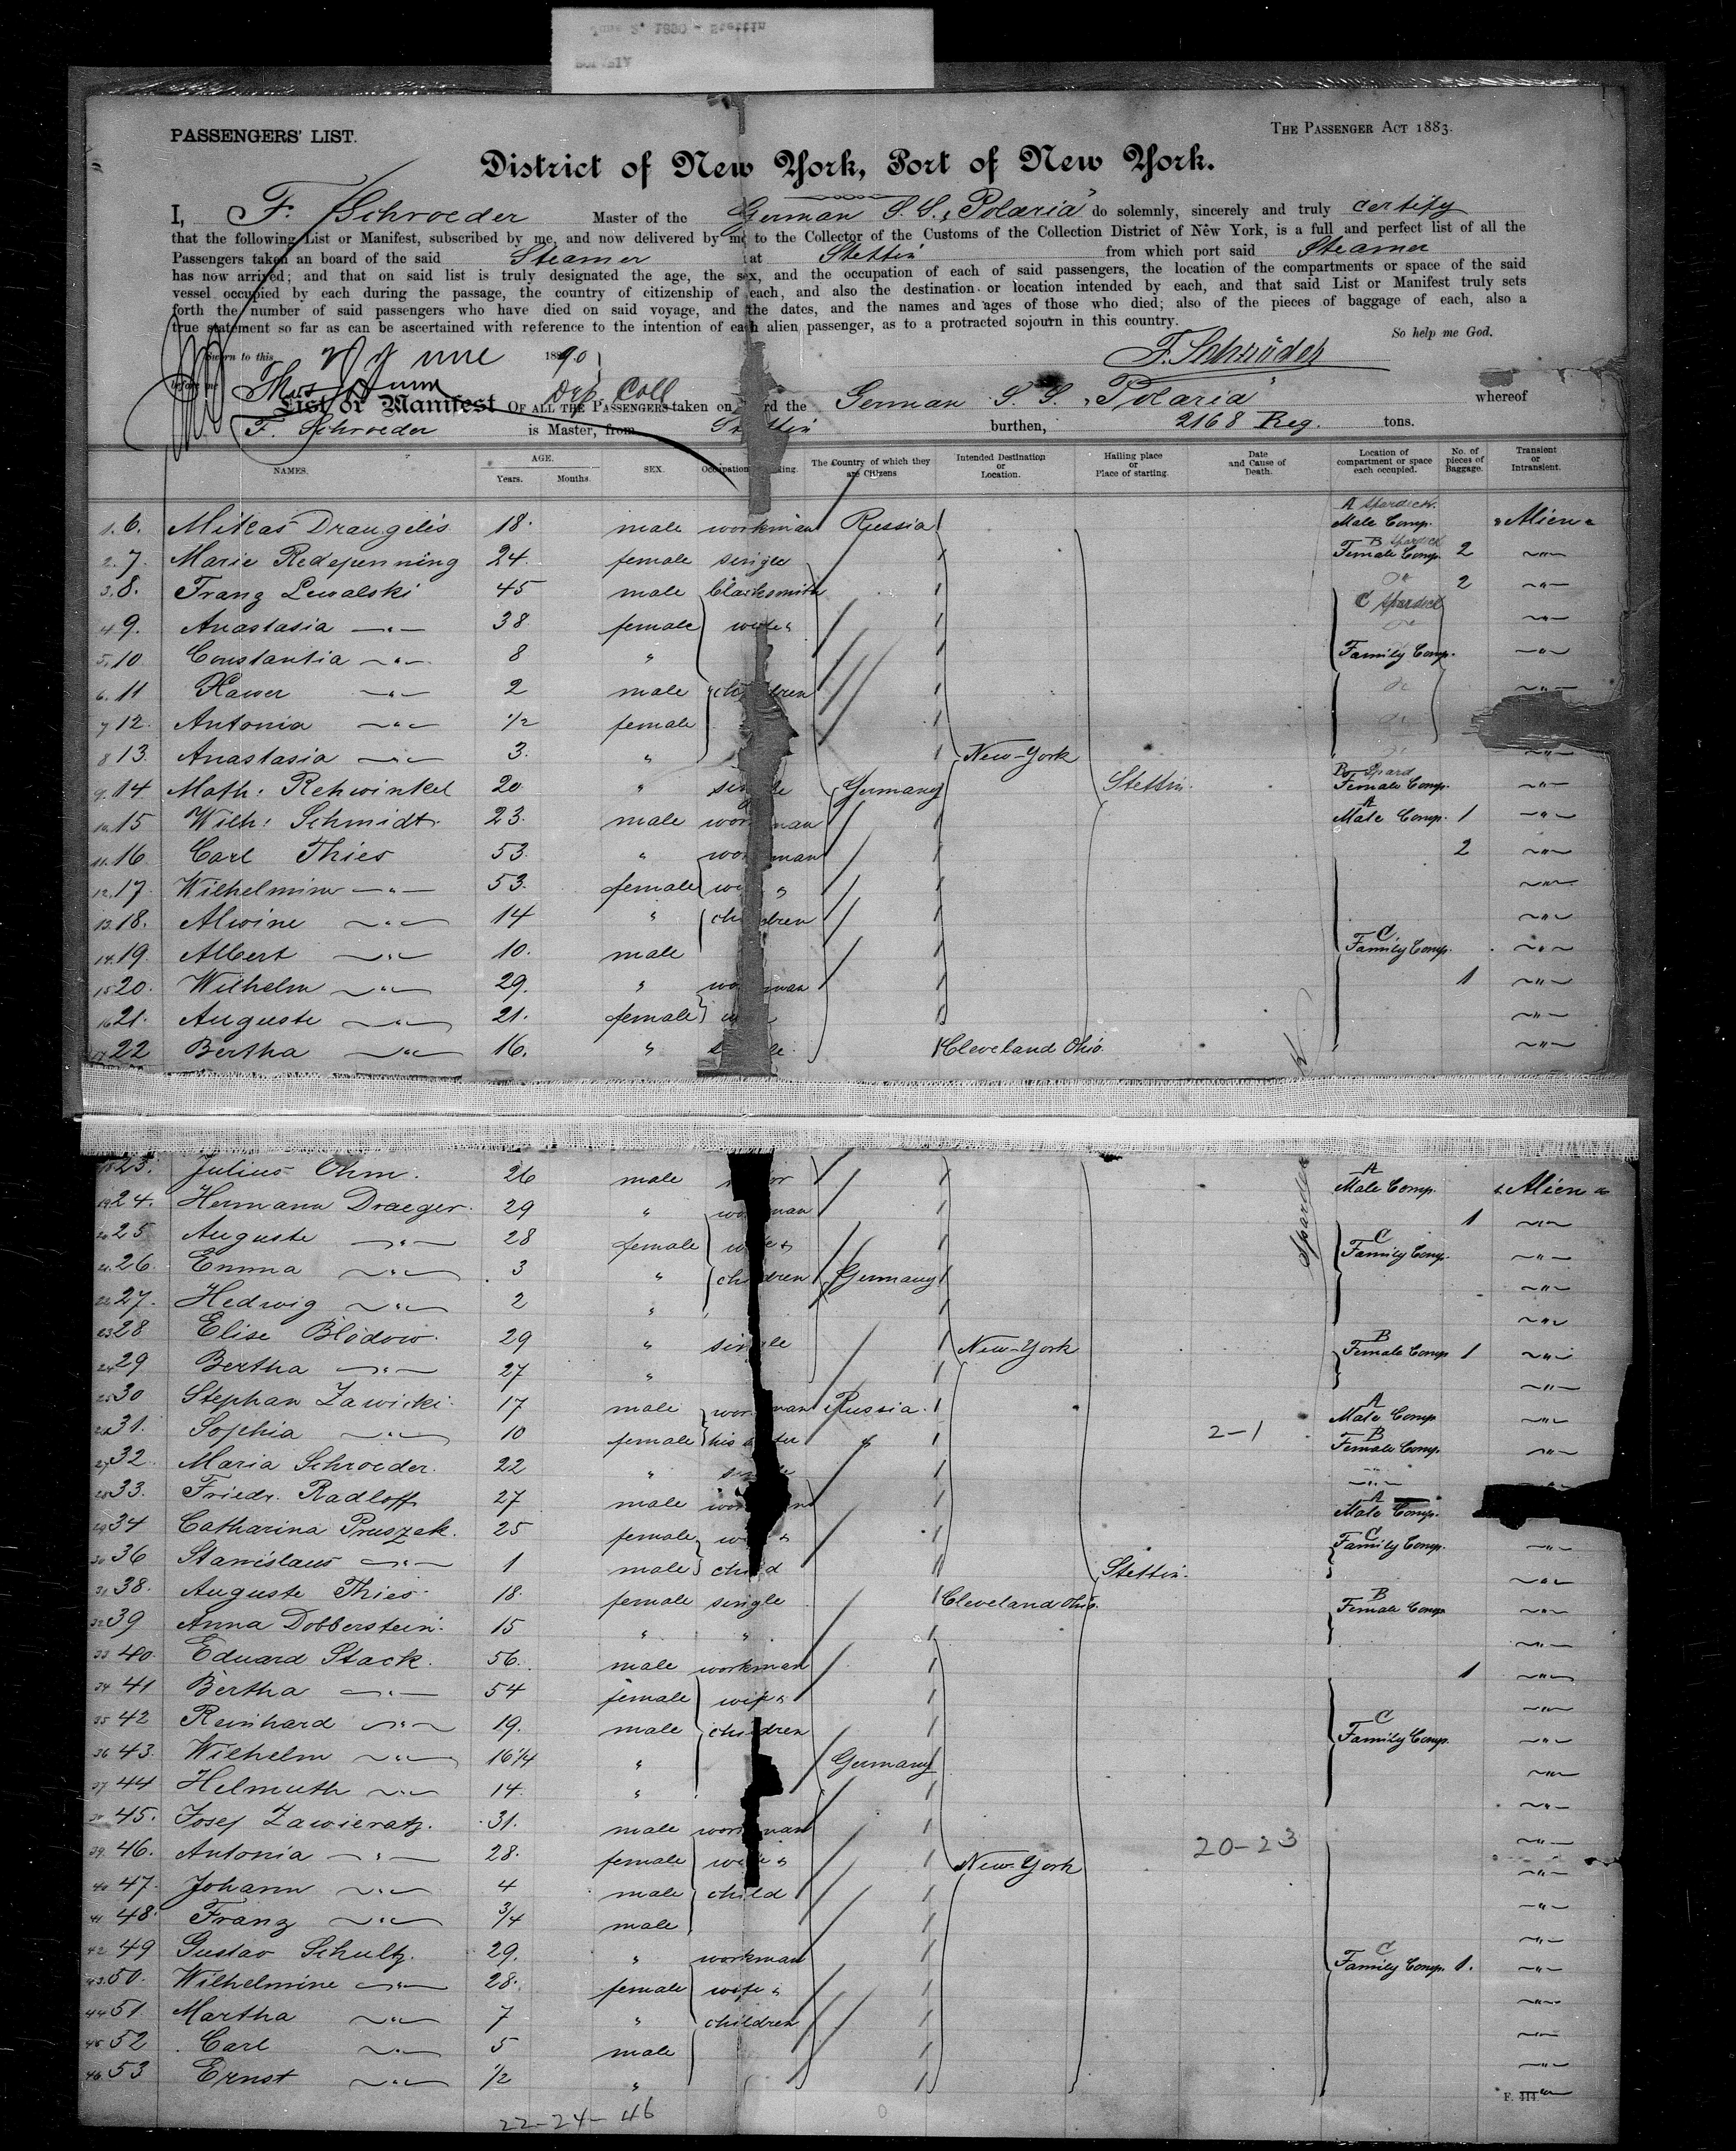 June 2, 1890 - Stettin
PASSENGERS' LIST.
THE PASSENGER ACT 1883.
District of New York, Port of New York.
I, F. Schroeder Master of the German S.S. „Polaria" do solemnly, sincerely and truly certify
that the following List or Manifest, subscribed by me, and now delivered by me to the Collector of the Customs of the Collection District of New York, is a full and perfect list of all the
Passengers taken an board of the said Steamer at Stettin from which port said Steamer
has now arrived; and that on said list is truly designated the age, the sex, and the occupation of each of said passengers, the location of the compartments or space of the said
vessel occupied by each during the passage, the country of citizenship of each, and also the destination or location intended by each, and that said List or Manifest truly sets
forth the number of said passengers who have died on said voyage, and the dates, and the names and ages of those who died; also of the pieces of baggage of each, also a
true statement so far as can be ascertained with reference to the intention of each alien passenger, as to a protracted sojourn in this country.
So help me God.
Sworn to this 2 June 1890
F. Schröder
before me Thos Dunn Dep. Coll
List or Manifest OF ALL THE PASSENGERS taken on board the German S.S. „Polaria" whereof
F. Schroeder is Master, from Stettin burthen, 2168 Reg. tons.
NAMES. AGE. Years. Months. SEX. Occupation The Country of which they are Citizens Intended Destination or Location. Hailing place or Place of starting. Date and Cause of Death. Location of compartment or space each occupied. No. of pieces of Baggage. Transient or Intransient.
1. 6. Mikas Draugelis 18. male workman Russia A Spardeck Male Comp. Alien
2. 7. Marie Redepenning 24. female single B Spardeck Female Comp. 2 〃
3. 8. Franz Lewalski 45 male blacksmith 2 〃
4. 9. Anastasia 〃 38 female wife & C Spardeck 〃
5. 10 Constantia 〃 8 〃 Family Comp. 〃
6. 11 Xawer 〃 2 male children 〃
7 12. Antonia 〃 1/2 female
8 13. Anastasia 〃 3. 〃 New-York 〃
9. 14 Math: Rehwinkel 20 〃 single Germany Stettin. B Spard Female Comp. 〃
10. 15 Wilh: Schmidt 23. male workman A Male Comp. 1 〃
11. 16 Carl Thies 53 〃 workman 2 〃
12. 17. Wilhelmine 〃 53. female wife & 〃
13. 18. Alwine 〃 14 〃 children 〃
14. 19. Albert 〃 10. male C. Family Comp. 〃
15 20. Wilhelm 〃 29. 〃 workman 1 〃
16 21. Auguste 〃 21. female wife 〃
17 22 Bertha 〃 16. 〃 single Cleveland Ohio. 〃
18 23. Julius Ohm. 26 male A Male Comp. Alien
19 24. Hermann Draeger. 29 〃 workman 1 〃
20 25 Auguste 〃 28 female wife & C Family Comp. 〃
21. 26. Emma 〃 3 〃 children Germany 〃
22 27. Hedwig 〃 2 〃 〃
Spardeck
23 28 Elise Blödow. 29 〃 single New-York B Female Comp 1 〃
24 29 Bertha 〃 27 〃 〃
25 30 Stephan Zawicki. 17 male workman Russia. A Male Comp 〃
26 31. Sophia 〃 10 female his sister 〃 2-1 B Female Comp. 〃
27 32. Maria Schroeder. 22 〃 single 〃
28 33. Friedr. Radloff 27 male workman A Male Comp.
29 34 Catharina Pruszak. 25 female wife & C Family Comp. 〃
30 36 Stanislaus 〃 1 male child Stettin. 〃
31 38. Auguste Thies. 18. female single Cleveland Ohio. B Female Comp 〃
32 39 Anna Dobberstein. 15 〃 〃 〃
33 40. Eduard Stack. 56. male workman 1 〃
34 41 Bertha 〃 54 female wife & 〃
35 42 Reinhard 〃 19. male children C Family Comp. 〃
36 43. Wilhelm 〃 16 1/4 〃 Germany 〃
37 44 Helmuth 〃 14. 〃 〃
38 45. Josef Zawieratz. 31. male workman 〃
39. 46. Antonia 〃 28. female wife & New-York 20-23 〃
40 47. Johann 〃 4 male child 〃
41 48. Franz 〃 3/4 male 〃
42 49 Gustav Schultz. 29. 〃 workman C Family Comp. 1. 〃
43. 50. Wilhelmine 〃 28. female wife & 〃
44 51. Martha 〃 7 〃 children 〃
45 52 Carl 〃 5 male 〃
46. 53 Ernst 〃 1/2 〃 〃
22-24-46